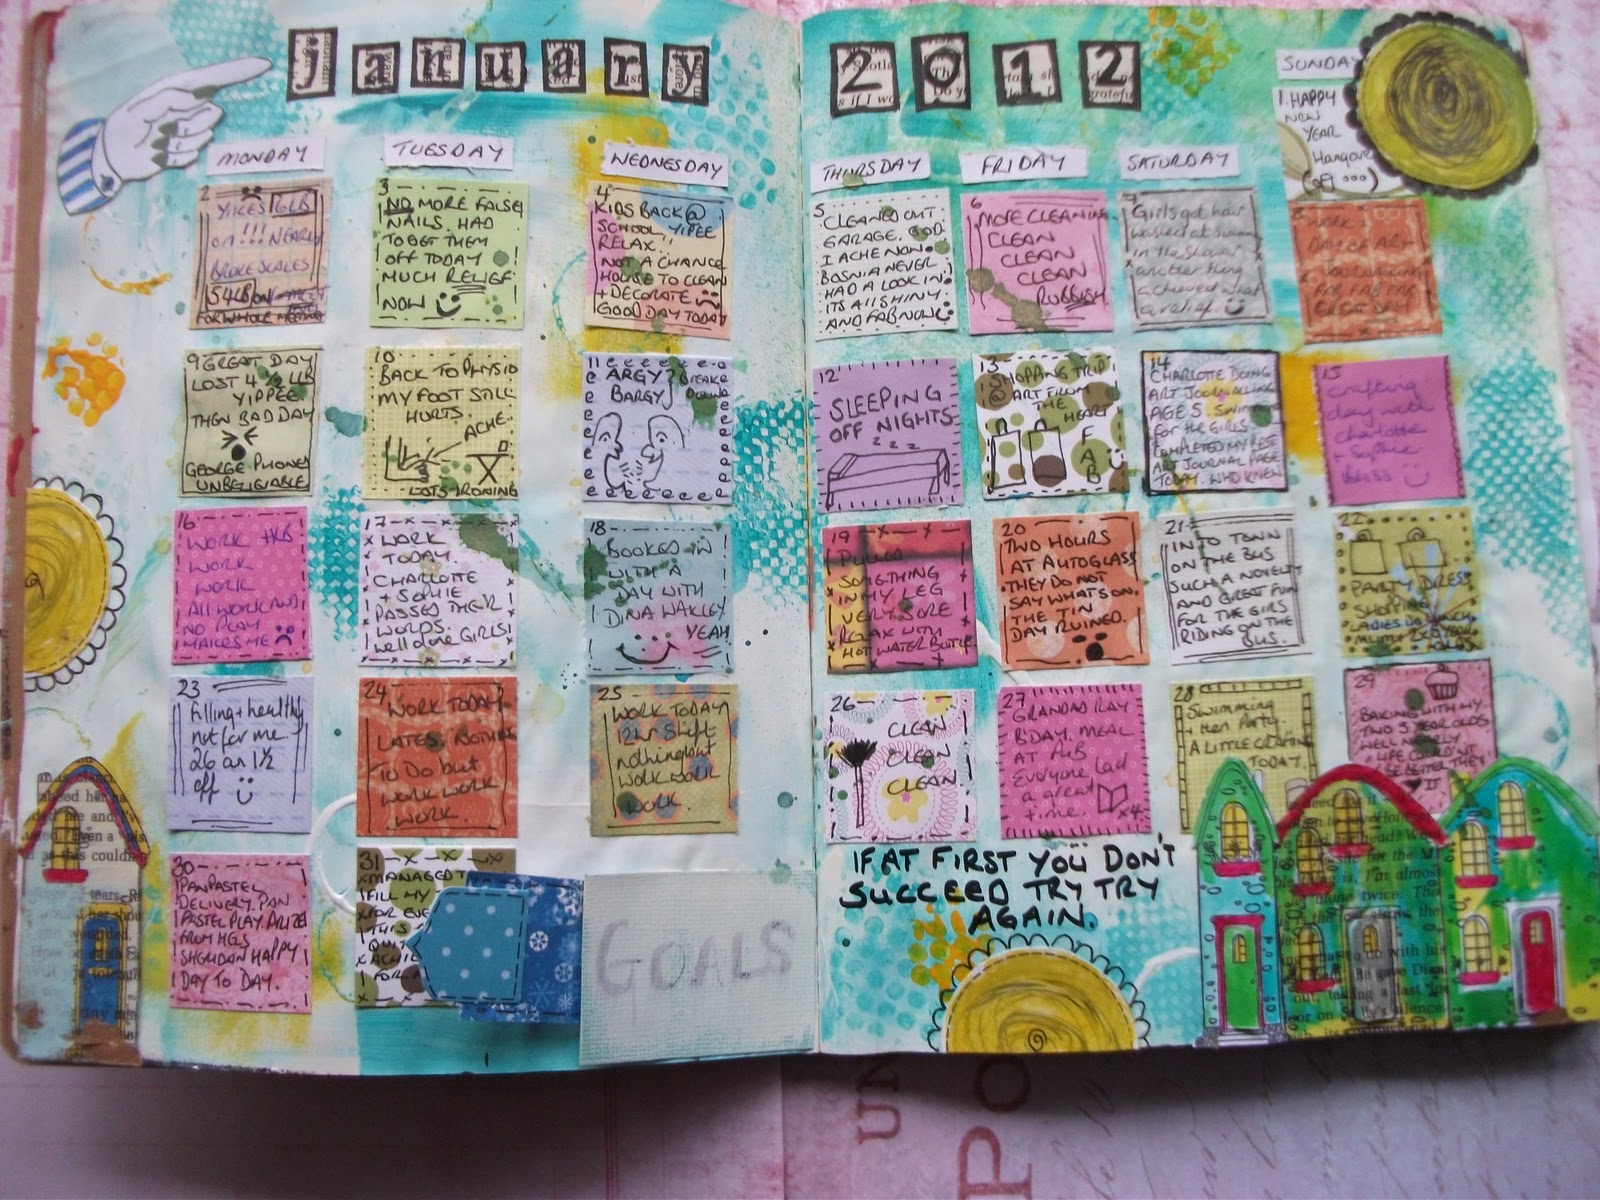 january 2012
SUNDAY
1. HAPPY
NEW
YEAR
Hangover
MONDAY
TUESDAY
WEDNESDAY
THURSDAY
FRIDAY
SATURDAY
2
YIKES 6LB
on!!! NEARLY
BROKE SCALES
54LB ON
FOR WHOLE MEETING
3
NO MORE FALSE
NAILS. HAD
TO GET THEM
OFF TODAY
MUCH RELIEF
NOW
4
KIDS BACK @
SCHOOL,, YIPEE
RELAX.
NOT A CHANCE
HOUSE TO CLEAN
+ DECORATE
GOOD DAY TODAY
5
CLEANED OUT
GARAGE. GOD
I ACHE NOW.
BOSNIA NEVER
HAD A LOOK IN
ITS All SHINY
AND FAB NOW
6
MORE CLEANING
CLEAN
CLEAN
CLEAN
RUBBISH
7
Girls got hair
washed at
in the shower
another thing
achieved what
a relief
8
WORK I
DAY OF ART
JOURNALLING
FAB FAB FAB
GREAT DAY
9 GREAT DAY
LOST 4 1/2 LB
YIPPEE
THEN BAD DAY
GEORGE PHONED
UNBELIEVABLE
10
BACK TO PHYSIO
MY FOOT STILL
HURTS.
ACHE.
LOTS IRONING
11
ARGY
BARGY
BREAK
DOWN
12
SLEEPING
OFF NIGHTS
z z z
13
SHOPPING TRIP
@ ART FROM
THE
HEART
F
A
B
14
CHARLOTTE DOING
ART JOURNALLING
AGE 5. Swimming
for the GIRLS.
COMPLETED MY
ART JOURNAL PAGE
TODAY. WHO KNEW
15
Crafting
day with
charlotte
+ Sophie
bliss
16
WORK
WORK
WORK
All WORK AND
NO PLAY
MAKES ME
17
WORK
TODAY.
CHARLOTTE
+ SOPHIE
PASSED THEIR
WORDS.
Well done GIRLS
18
BOOKED IN
WITH A
DAY WITH
DINA WAKLEY
YEAH
19
PULLED
SOMETHING
IN MY LEG
VERY SORE
RELAX WITH
HOT WATER BOTTLE
20
TWO HOURS
AT AUTOGLASS
THEY DO NOT
SAY WHATS ON
THE TIN
DAY RUINED.
21
IN TO TOWN
ON THE BUS
SUCH A NOVELTY
AND GREAT FUN
FOR THE GIRLS
RIDING ON THE
BUS.
22
PARTY DRESS
SHOPPING
LADIES DO LUNCH
23
filling + healthy
not for me
26 an 1 1/2
off
24
WORK TODAY
LATES NOTHING
TO DO but
WORK WORK
WORK.
25
WORK TODAY
12hr Shift
nothing but
WORK WORK
WORK.
26
CLEAN
CLEAN
CLEAN
27
GRANDAD RAY
BDAY. MEAL
AT PUB
Everyone had
a great
time.
x4
28
Swimming
then Party.
A LITTLE CRAFTING
TODAY.
29
BAKING WITH MY
TWO 5 YEAR OLDS
WELL NEARLY
LIFE COULDN'T
BE BETTER THEY
IT
30
PANPASTEL
DELIVERY. PAN
PASTEL PLAY. PRIZE
FROM HGS
SHERIDAN HAPPY
DAY TO DAY.
31
MANAGED T
FILL MY
FOR EVE
THIS
QUIT
ACHI
FOR
GOALS
IF AT FIRST YOU DON'T
SUCCEED TRY TRY
AGAIN.